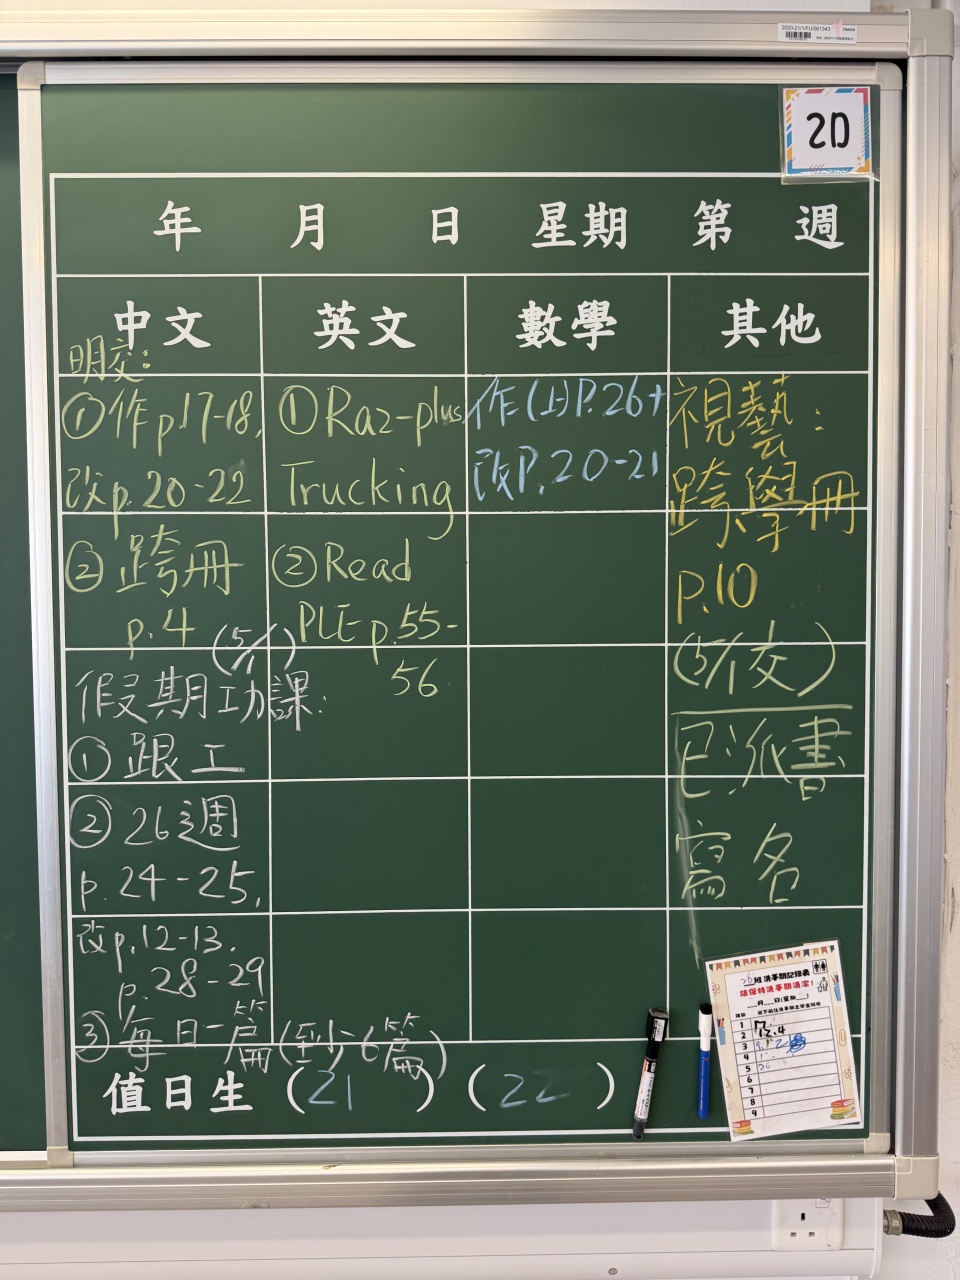 2020-21/1/FU/001343
2D
年 月 日 星期 第 週
中文 英文 數學 其他
明交：
①作p.17-18,
改p.20-22
②跨冊
p.4 (5/1)
假期功課:
①跟工
②26週
p.24-25,
改p.12-13.
p.28-29
③每日一篇(到少6篇)
①Raz-plus
Trucking
②Read
PLE p.55-
56
作(上)P.26+
改P.20-21
視藝:
跨學冊
p.10
(5/1交)
已派書
寫名
值日生 (21) (22)
2D班洗手間記錄表
請保持洗手間清潔!
__月__日(星期__)
1
2
3
4
5
6
7
8
9